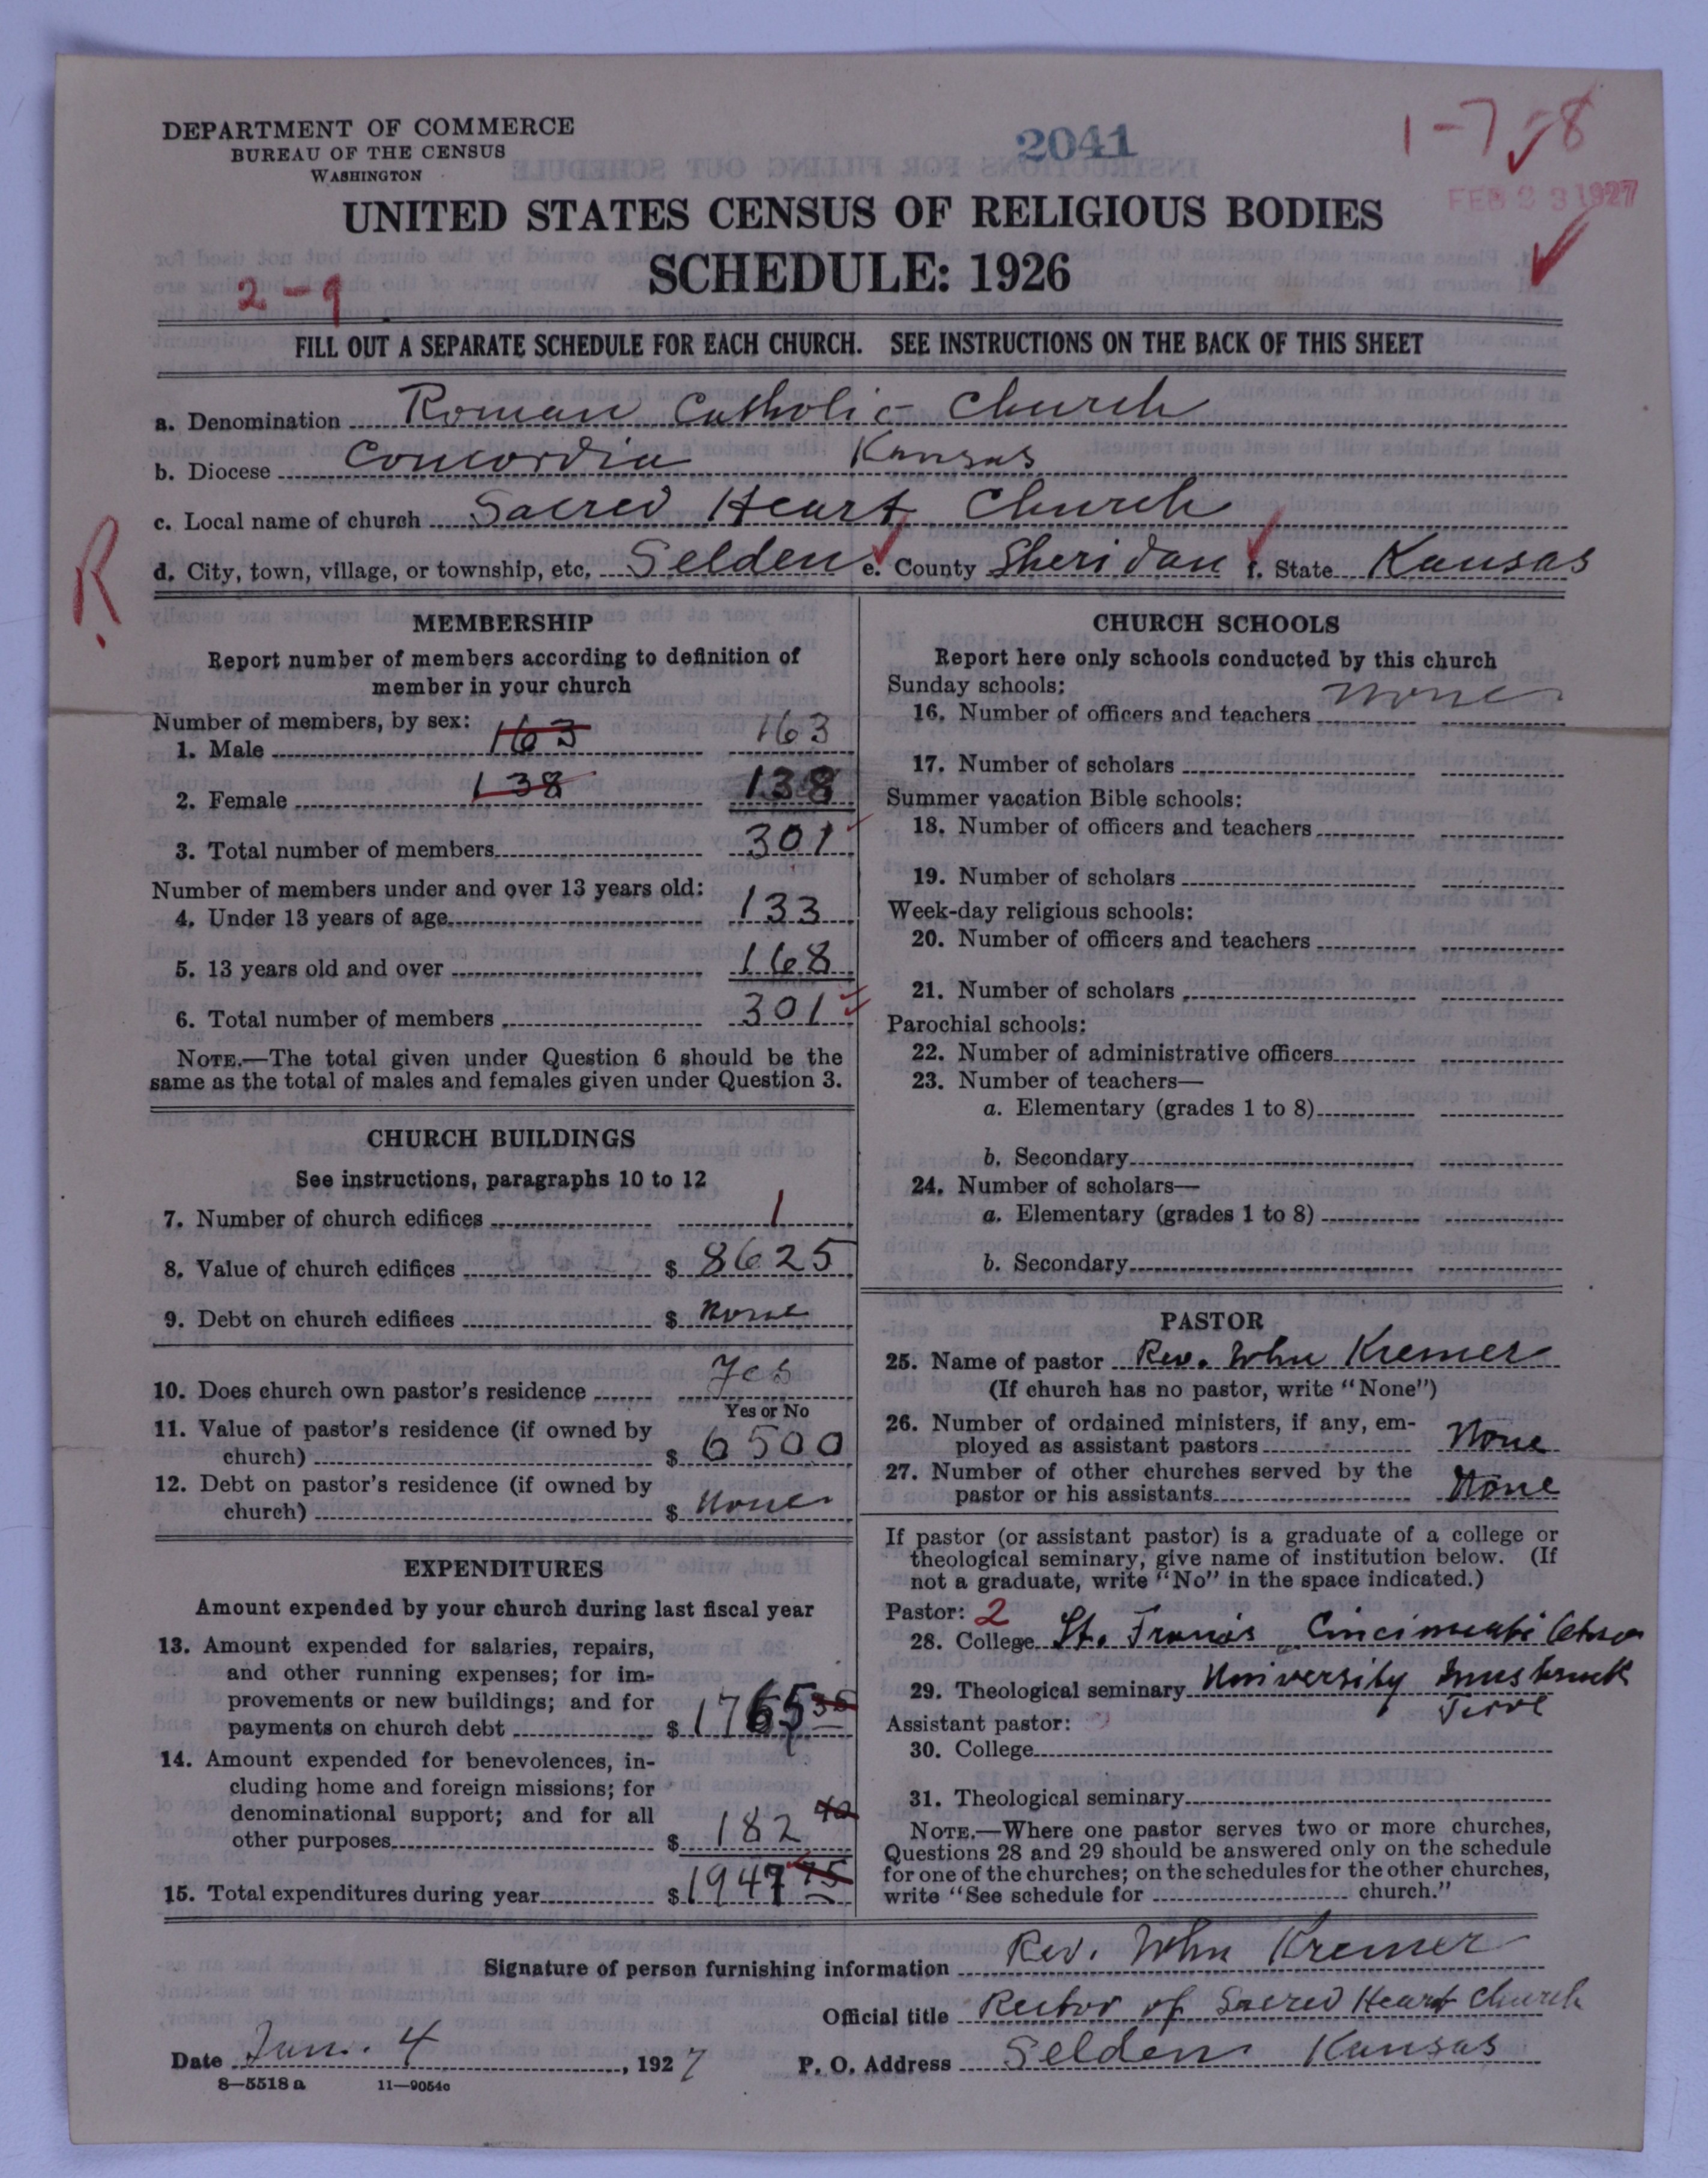 DEPARTMENT OF COMMERCE
BUREAU OF THE CENSUS
WASHINGTON
2041
1-7-8
FEB 23 1927
UNITED STATES CENSUS OF RELIGIOUS BODIES
SCHEDULE: 1926
2-9
FILL OUT A SEPARATE SCHEDULE FOR EACH CHURCH. SEE INSTRUCTIONS ON THE BACK OF THIS SHEET
a. Denomination Roman Catholic Church
b. Diocese Concordia Kansas
c. Local name of church Sacred Heart Church
R
d. City, town, village, or township, etc. Selden e. County Sheridan f. State Kansas
MEMBERSHIP
Report number of members according to definition of
member in your church
Number of members, by sex:
1. Male 163 163
2. Female 138 138
3. Total number of members 301
Number of members under and over 13 years old:
4. Under 13 years of age 133
5. 13 years old and over 168
6. Total number of members 301
NOTE.—The total given under Question 6 should be the
same as the total of males and females given under Question 3.
CHURCH BUILDINGS
See instructions, paragraphs 10 to 12
7. Number of church edifices 1
8. Value of church edifices $ 8625
9. Debt on church edifices $ None
10. Does church own pastor's residence Yes
Yes or No
11. Value of pastor's residence (if owned by
church) $ 6500
12. Debt on pastor's residence (if owned by
church) $ None
EXPENDITURES
Amount expended by your church during last fiscal year
13. Amount expended for salaries, repairs,
and other running expenses; for im-
provements or new buildings; and for
payments on church debt $ 1765 35
14. Amount expended for benevolences, in-
cluding home and foreign missions; for
denominational support; and for all
other purposes $ 182 40
15. Total expenditures during year $ 1947 75
CHURCH SCHOOLS
Report here only schools conducted by this church
Sunday schools:
16. Number of officers and teachers None
17. Number of scholars
Summer vacation Bible schools:
18. Number of officers and teachers
19. Number of scholars
Week-day religious schools:
20. Number of officers and teachers
21. Number of scholars
Parochial schools:
22. Number of administrative officers
23. Number of teachers—
a. Elementary (grades 1 to 8)
b. Secondary
24. Number of scholars—
a. Elementary (grades 1 to 8)
b. Secondary
PASTOR
25. Name of pastor Rev. John Kremer
(If church has no pastor, write "None")
26. Number of ordained ministers, if any, em-
ployed as assistant pastors None
27. Number of other churches served by the
pastor or his assistants None
If pastor (or assistant pastor) is a graduate of a college or
theological seminary, give name of institution below. (If
not a graduate, write "No" in the space indicated.)
Pastor: 2
28. College St. Francis Cincinnati Ohio
29. Theological seminary University Innsbruck
Tirol
Assistant pastor:
30. College
31. Theological seminary
NOTE.—Where one pastor serves two or more churches,
Questions 28 and 29 should be answered only on the schedule
for one of the churches; on the schedules for the other churches,
write "See schedule for church."
Signature of person furnishing information Rev. John Kremer
Official title Rector of Sacred Heart Church
Date Jan. 4, 1927 P. O. Address Selden Kansas
8—5518 a 11—9054c